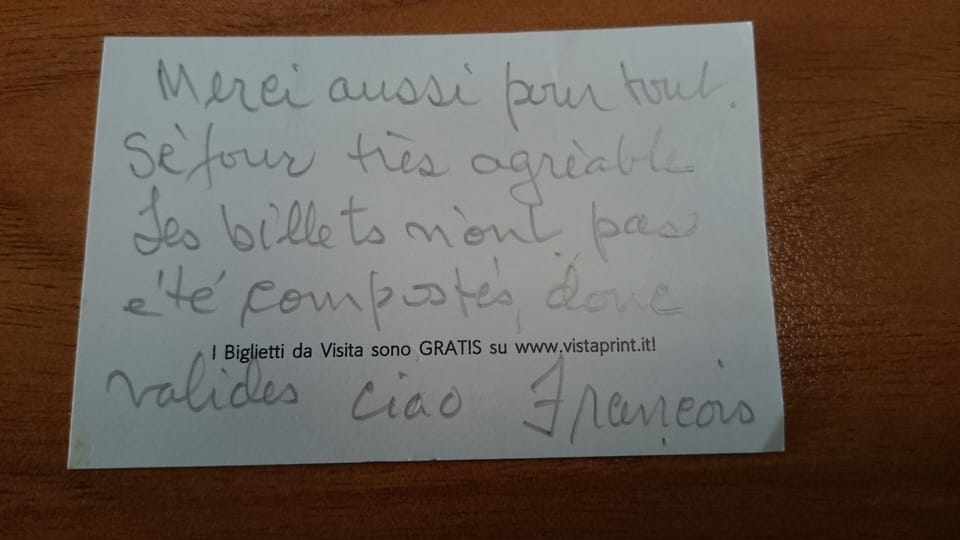 Merci aussi pour tout.
Séjour très agrèable
Les billets n'ont pas
été compostés, donc
I Biglietti da Visita sono GRATIS su www.vistaprint.it!
valides ciao François